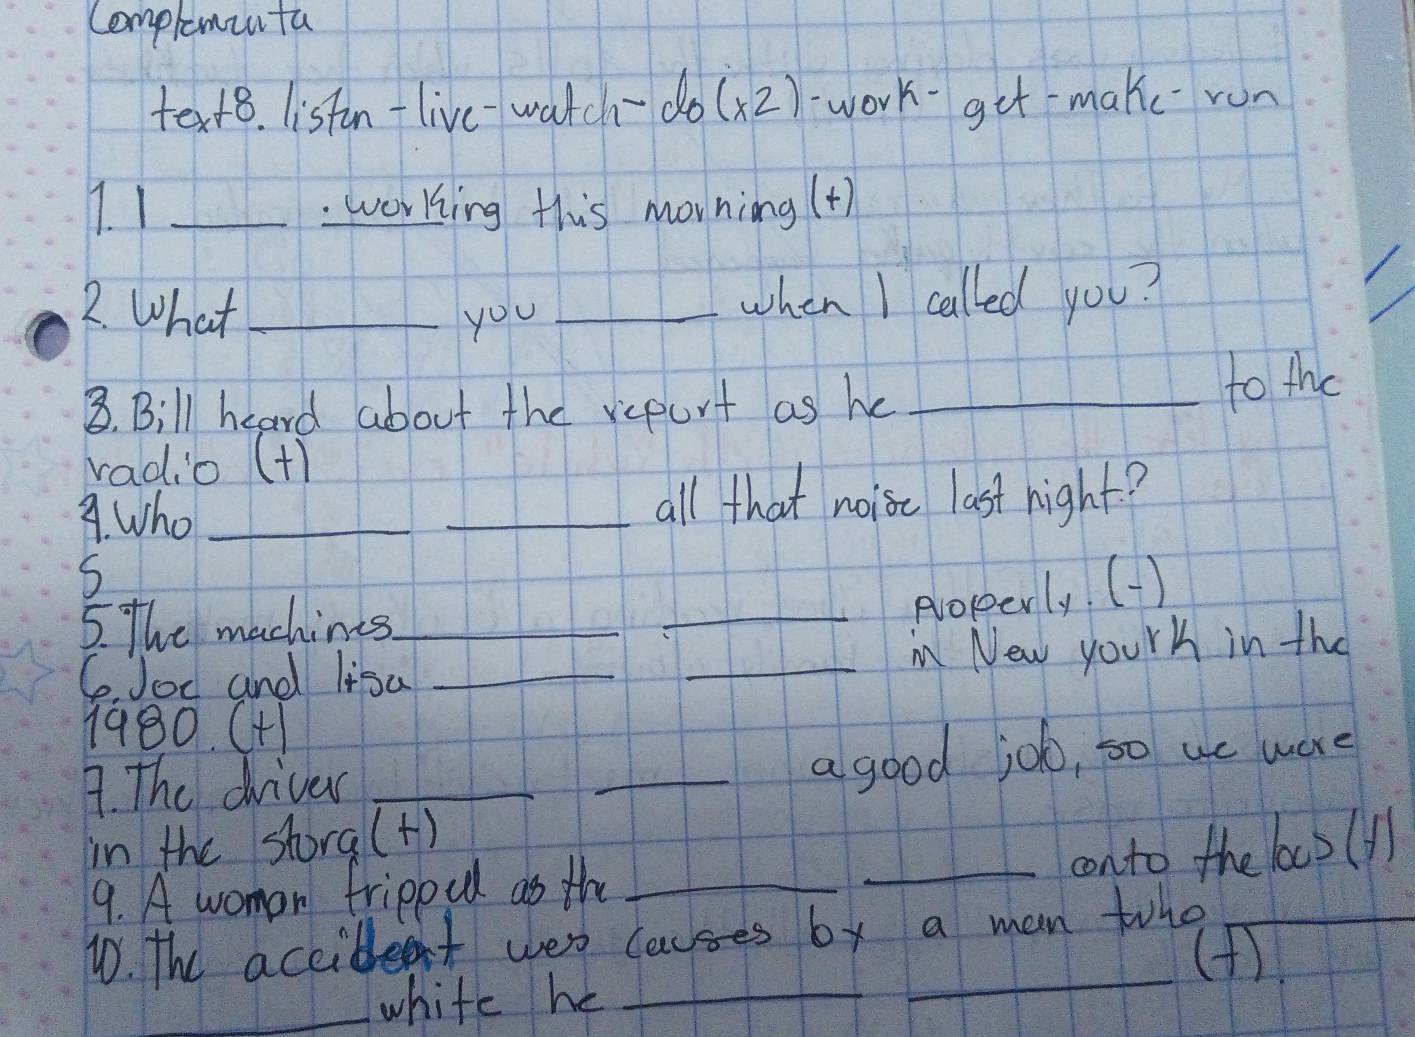 Complementa
text8. listen - live - watch - do (x2) - work - get - make - run
1. I ____ . working this morning (+)
2. What ____ you ____ when I called you?
3. Bill heard about the report as he ____ to the
radio (+)
4. Who ____ ____ all that noise last night?
5
5. The machines ____ ____ properly. (-)
6. Joe and lisa ____ ____ in New yourk in the
1980. (+)
7. The driver ____ ____ a good job, so we were
in the stora (+)
9. A woman tripped as the ____ ____ onto the bus (+)
10. The accident wes causes by a man who ____
____ white he ____ ____ (+).